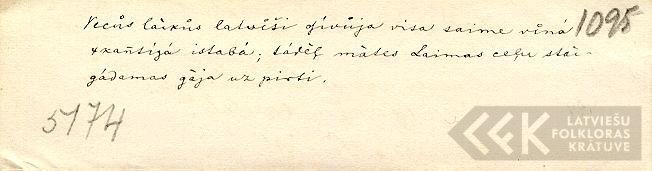 Vecůs lăikůs latwẽši dzívůja visa saime vĩná 1095
4kañtigá istabá; tádēļ mátes Laimas ceļu stái-
gádamas gája uz pirti.
5174
LATVIEŠU
FOLKLORAS
KRĀTUVE